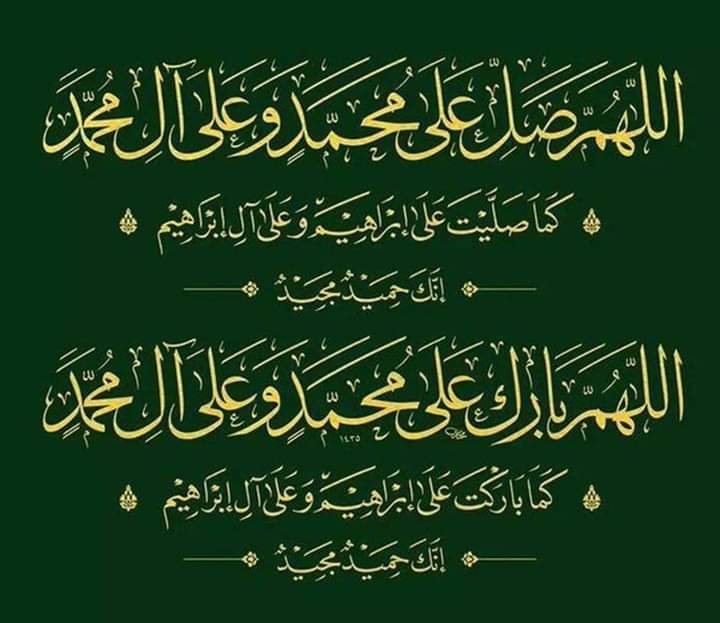 اللَّهُمَّ صَلِّ عَلَى مُحَمَّدٍ وَعَلَى آلِ مُحَمَّدٍ
كَمَا صَلَّيْتَ عَلَى إِبْرَاهِيمَ وَعَلَى آلِ إِبْرَاهِيمَ
إِنَّكَ حَمِيدٌ مَجِيدٌ
اللَّهُمَّ بَارِكْ عَلَى مُحَمَّدٍ وَعَلَى آلِ مُحَمَّدٍ
١٤٣٥
كَمَا بَارَكْتَ عَلَى إِبْرَاهِيمَ وَعَلَى آلِ إِبْرَاهِيمَ
إِنَّكَ حَمِيدٌ مَجِيدٌ